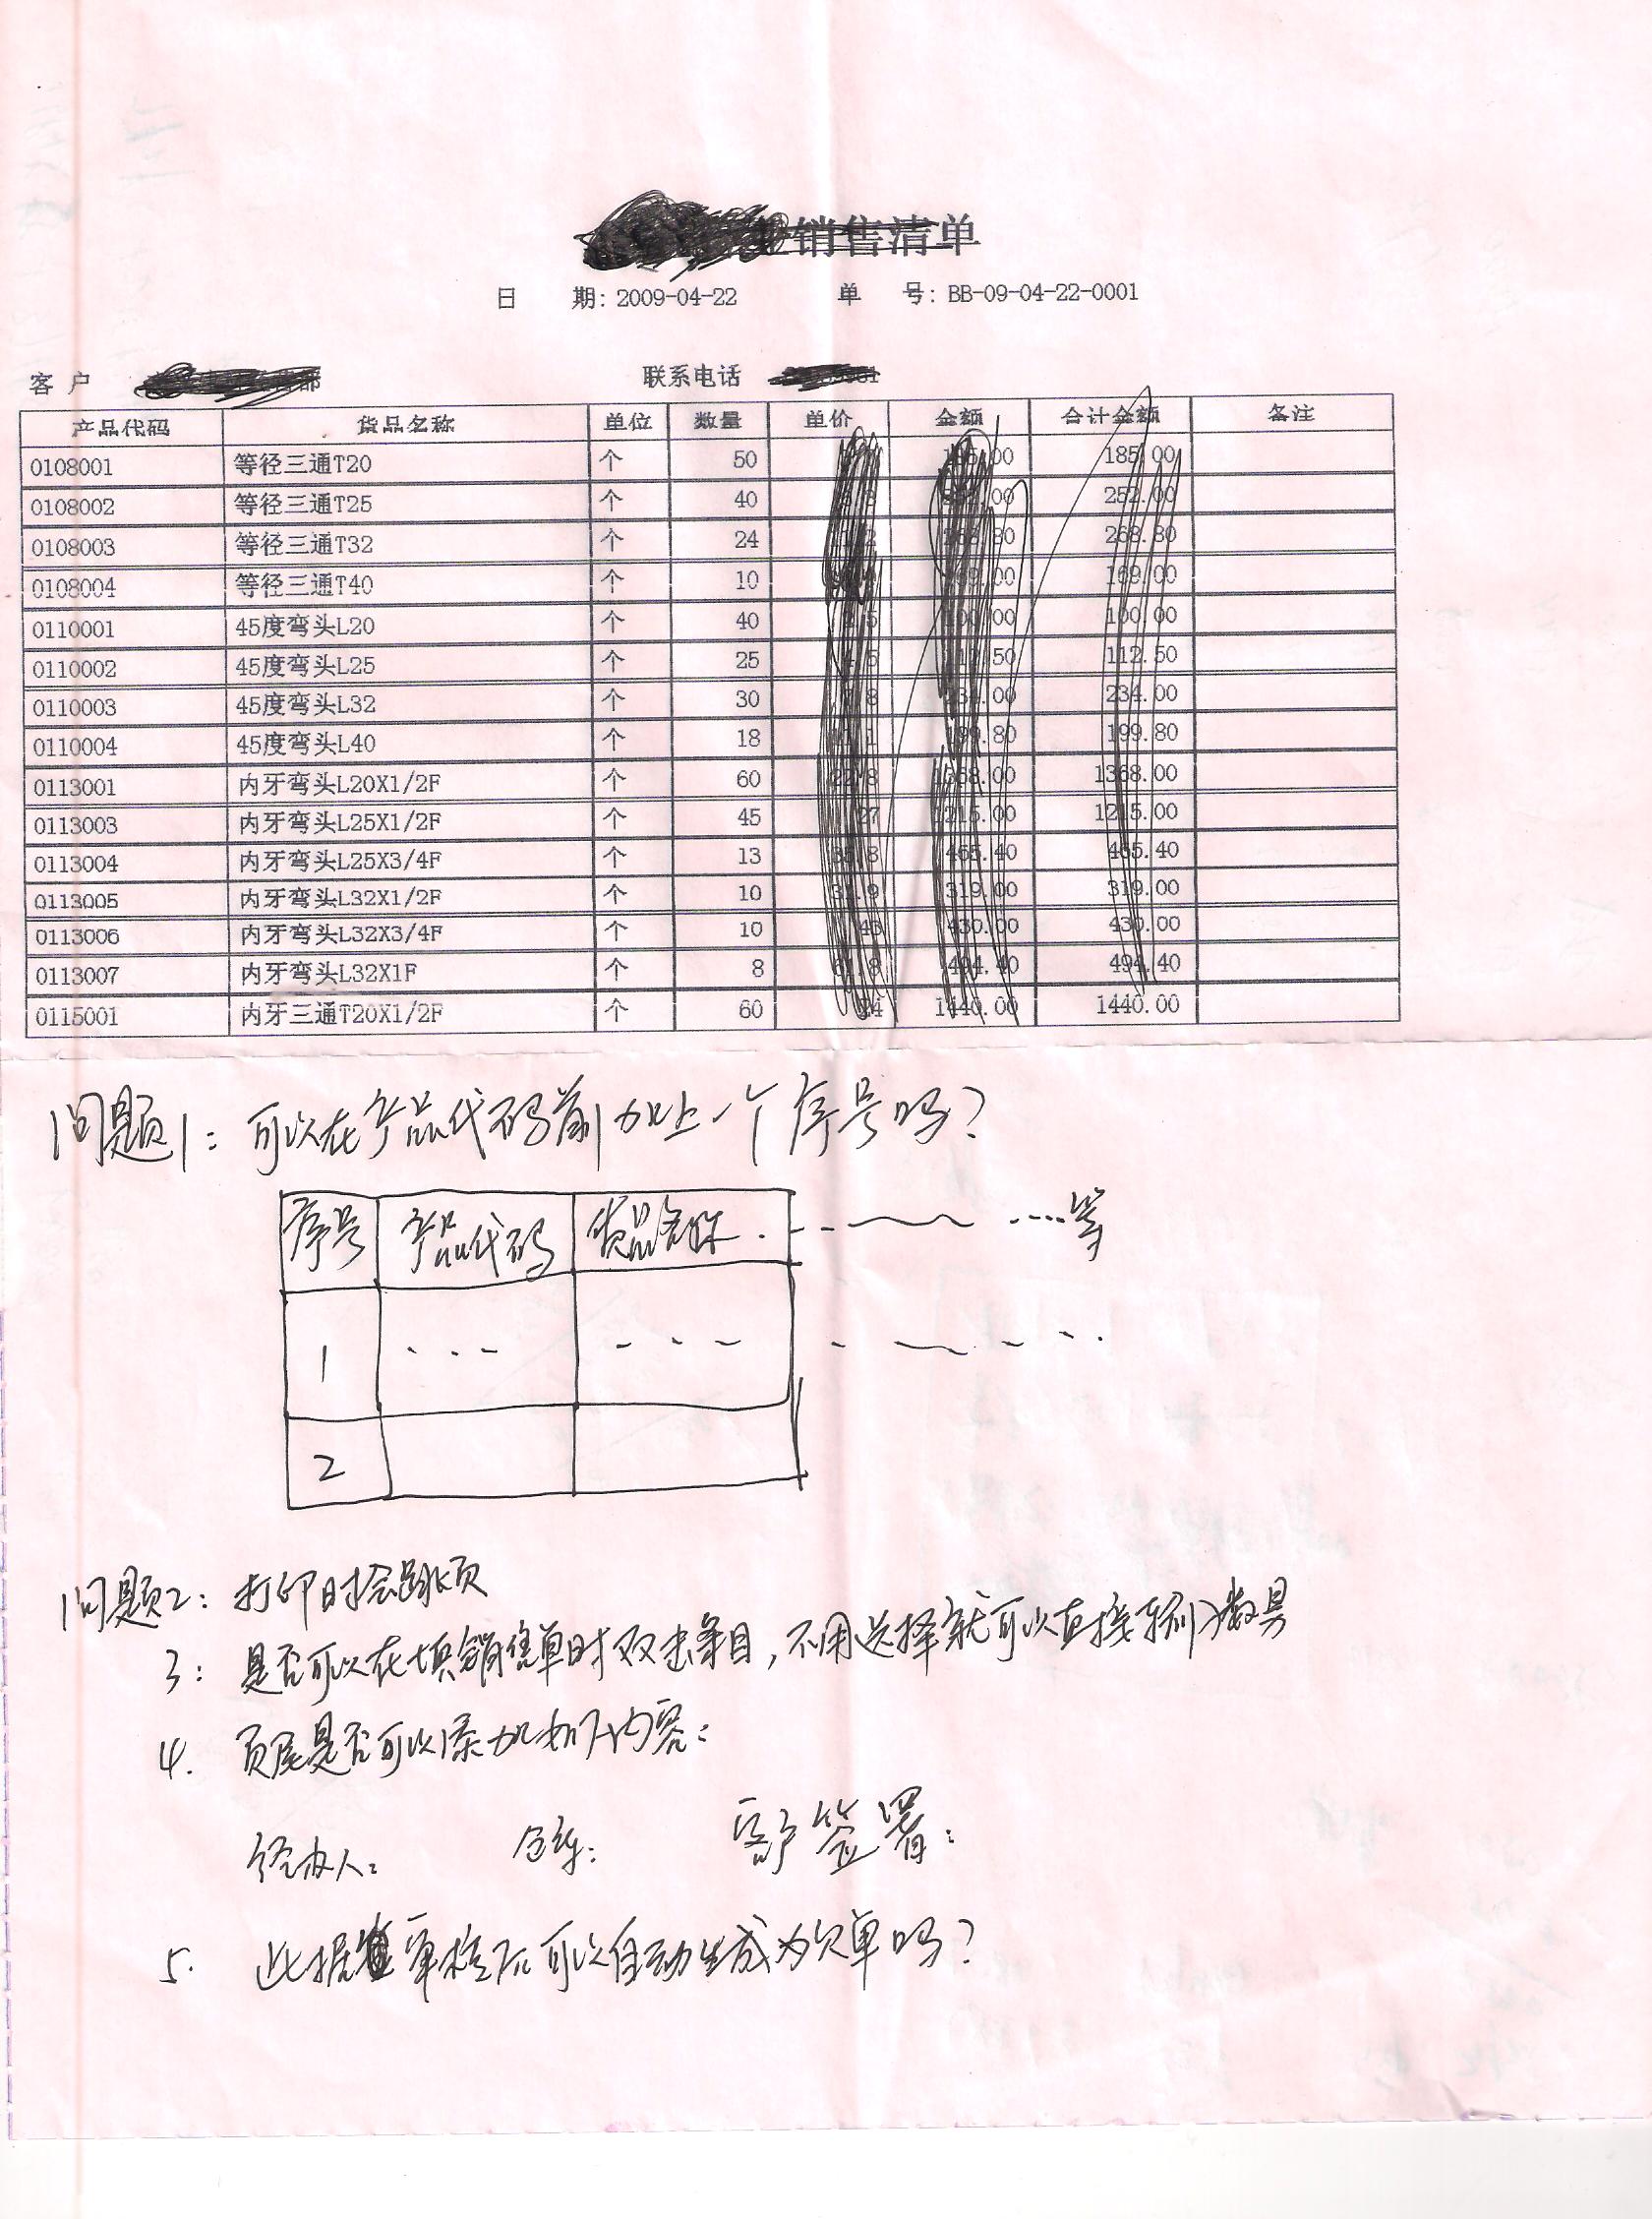 销售清单
日 期: 2009-04-22 单 号: BB-09-04-22-0001
客 户 联系电话
产品代码 货品名称 单位 数量 单价 金额 合计金额 备注
0108001 等径三通T20 个 50 185.00
0108002 等径三通T25 个 40 252.00
0108003 等径三通T32 个 24 268.80
0108004 等径三通T40 个 10 169.00
0110001 45度弯头L20 个 40 100.00
0110002 45度弯头L25 个 25 112.50
0110003 45度弯头L32 个 30 234.00
0110004 45度弯头L40 个 18 199.80
0113001 内牙弯头L20X1/2F 个 60 1368.00
0113003 内牙弯头L25X1/2F 个 45 27 1215.00 1215.00
0113004 内牙弯头L25X3/4F 个 13 465.40 465.40
0113005 内牙弯头L32X1/2F 个 10 31.9 319.00 319.00
0113006 内牙弯头L32X3/4F 个 10 43 430.00 430.00
0113007 内牙弯头L32X1F 个 8 494.40 494.40
0115001 内牙三通T20X1/2F 个 60 24 1440.00 1440.00
问题1: 可以在产品代码前加上一个序号吗?
序号 产品代码 货品名称 等
1
2
问题2: 打印时会跳页
3: 是否可以在填销售单时双击条目,不用选择就可以直接转入数量
4. 页尾是否可以添加如下内容:
经办人: 仓库: 客户签署:
5. 此据审核后可以自动生成为欠单吗?